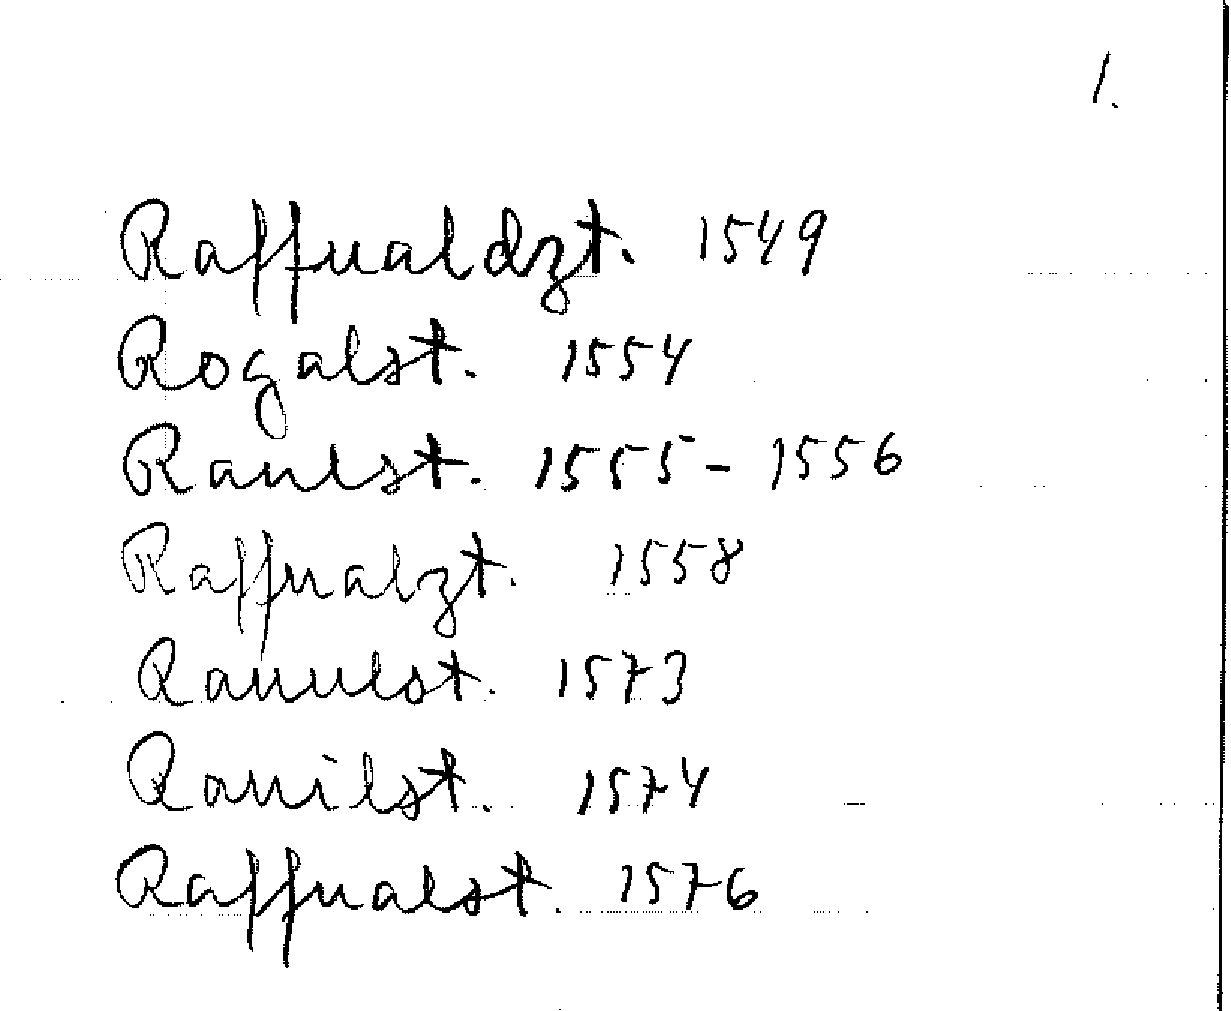 1.
Raffualdzt. 1549
Rogalst. 1554
Raulst. 1555-1556
Raffualzt. 1558
Rauulst. 1573
Rauilst. 1574
Raffualst. 1576